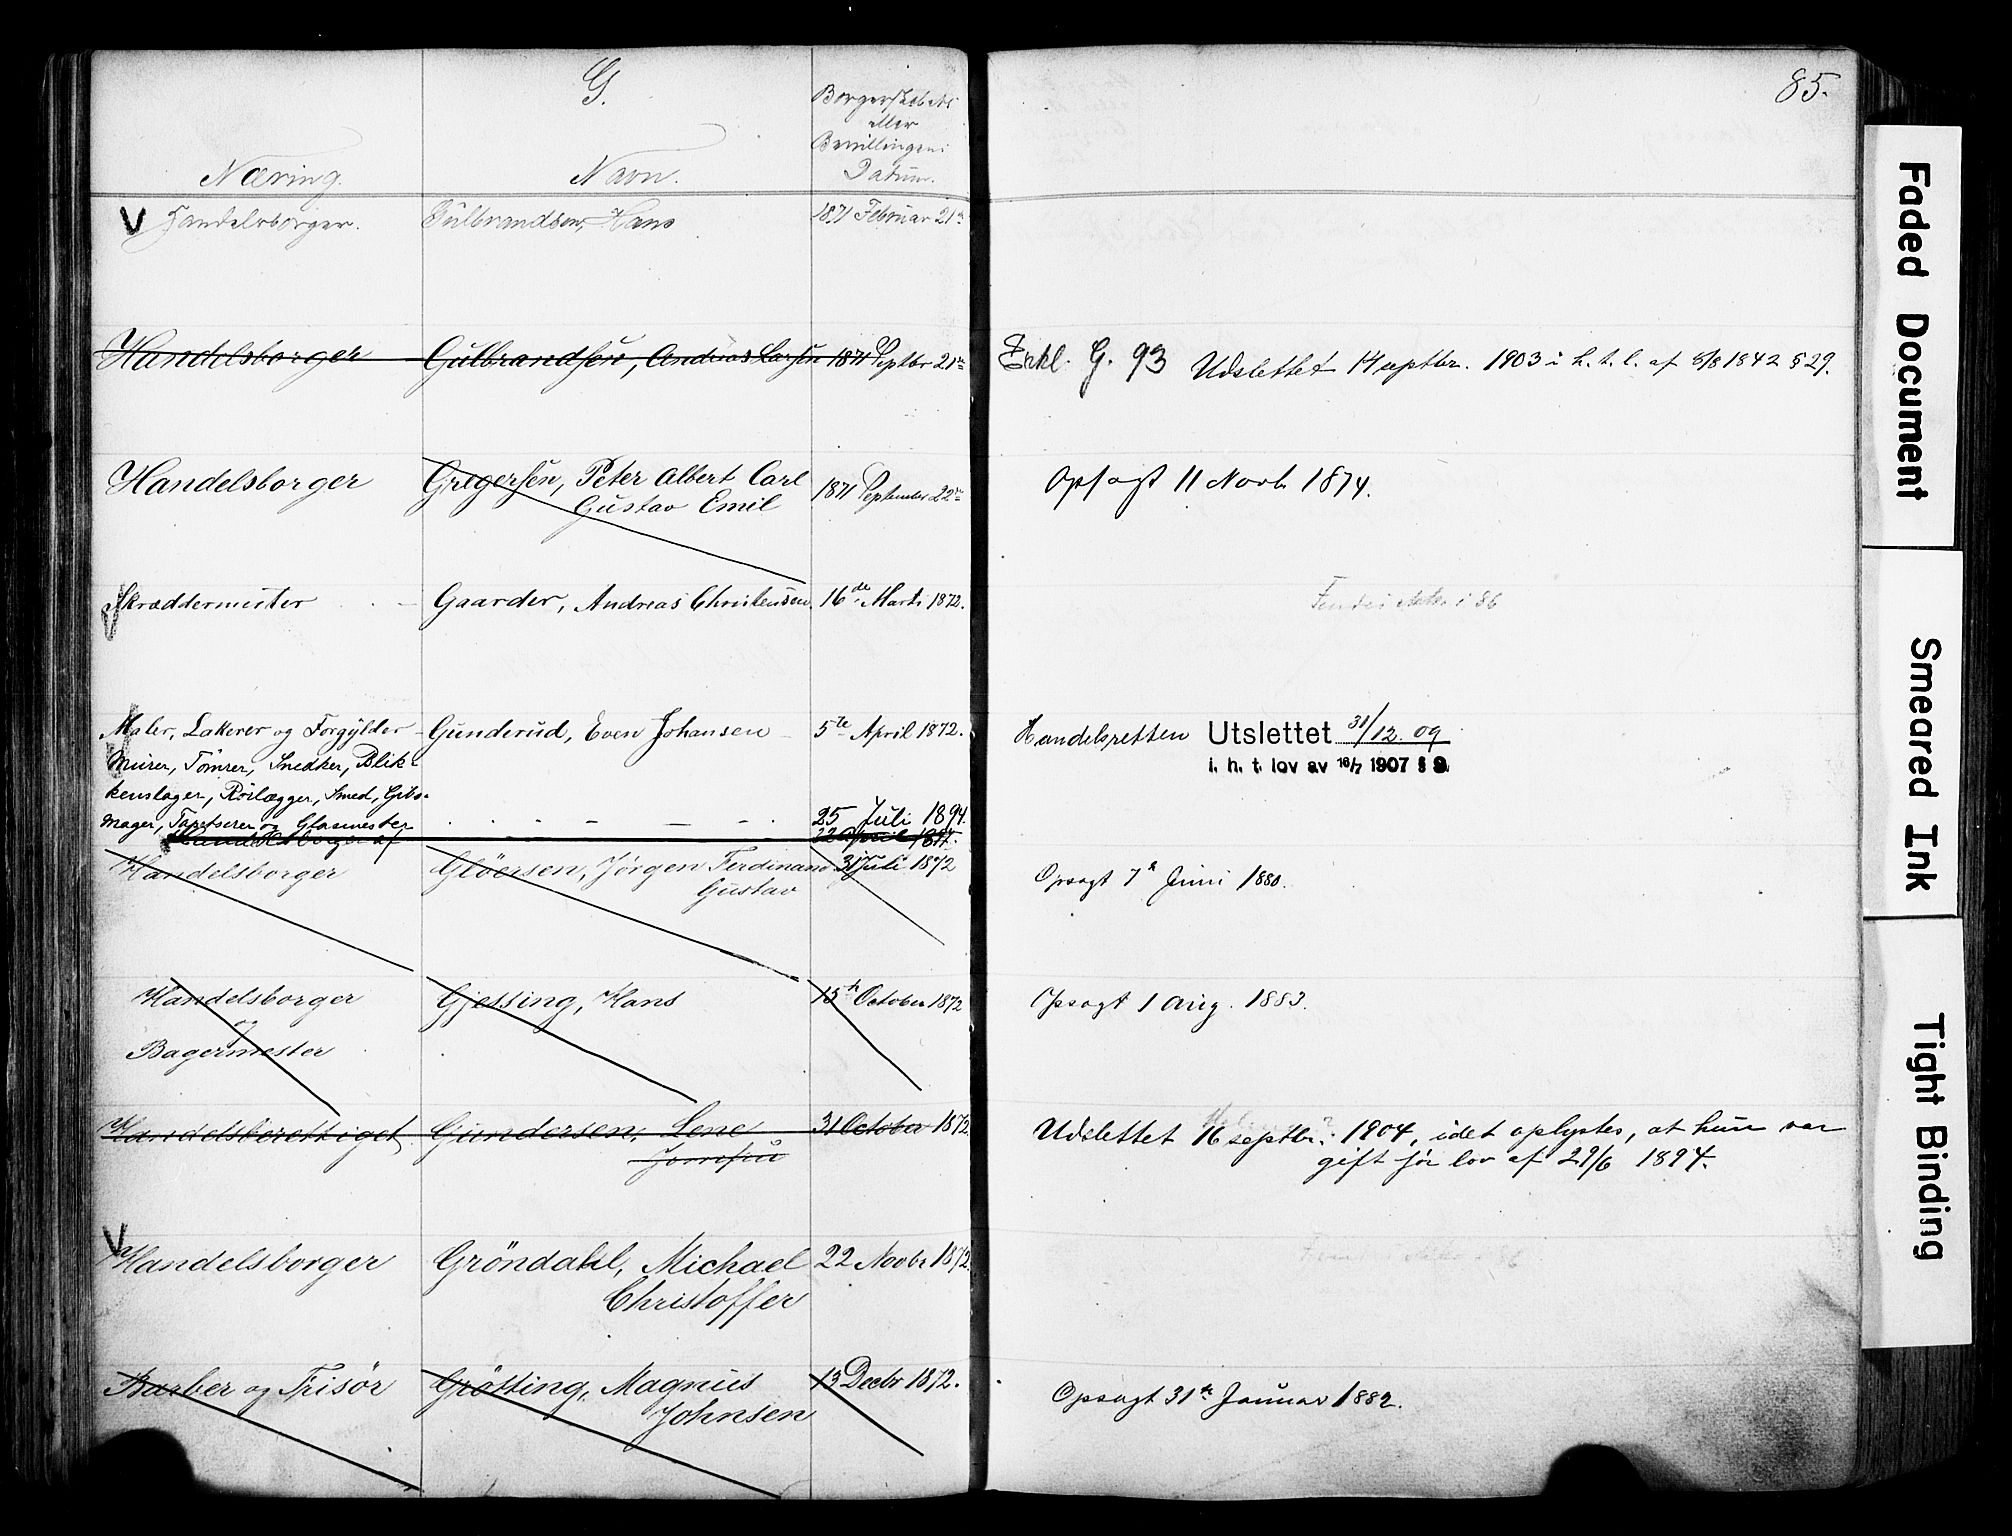 G.
85.
Borgerskabets
eller
Bevillingens
Datum.
Næring.
Navn.
V Handelsborger. Gulbrandsen, Hans 1871 Februar 21de
Handelsborger Gulbrandsen, Andreas Larsen 1871 Septbr 21de
G. 93 Udslettet 14 septbr. 1903 i h. t. l. af 8/8 1842 § 29.
Handelsborger Gregersen, Peter Albert Carl 1871 September 22de
Gustav Emil
Opsagt 11 Novb. 1874.
Skræddermester Gaarder, Andreas Christensen 16de Marts 1872.
i 86
Maler, Lakerer og Forgylder Gunderud, Even Johansen 5te April 1872.
Handelsretten Utslettet 31/12. 09
i. h. t. lov av 16/7 1907 § 9.
Murer, Tömrer, Snedker, Blik-
kenslager, Rörlægger, Smed, Gibs-
mager, Tapetserer og Glasmester 25 Juli 1894.
Handelsborger af 22 April 1874.
Handelsborger Glöersen, Jörgen Ferdinand 31 Juli 1872
Gustav
Opsagt 7de Juni 1880.
Handelsborger Gjessing, Hans 15de October 1872
og
Bagermester
Opsagt 1 aug. 1883.
Handelsberettiget Gundersen, Lene 31 October 1872.
Jomfru
Udslettet 16 septbr. 1904, idet oplystes, at hun var
gift før lov af 29/6 1894.
V Handelsborger Gröndahl, Michael 22 Novbr 1872.
Christoffer
Barber og Frisör Grötting, Magnus 13 Decbr 1872.
Johnsen
Opsagt 31te Januar 1882.
Faded Document
Smeared Ink
Tight Binding